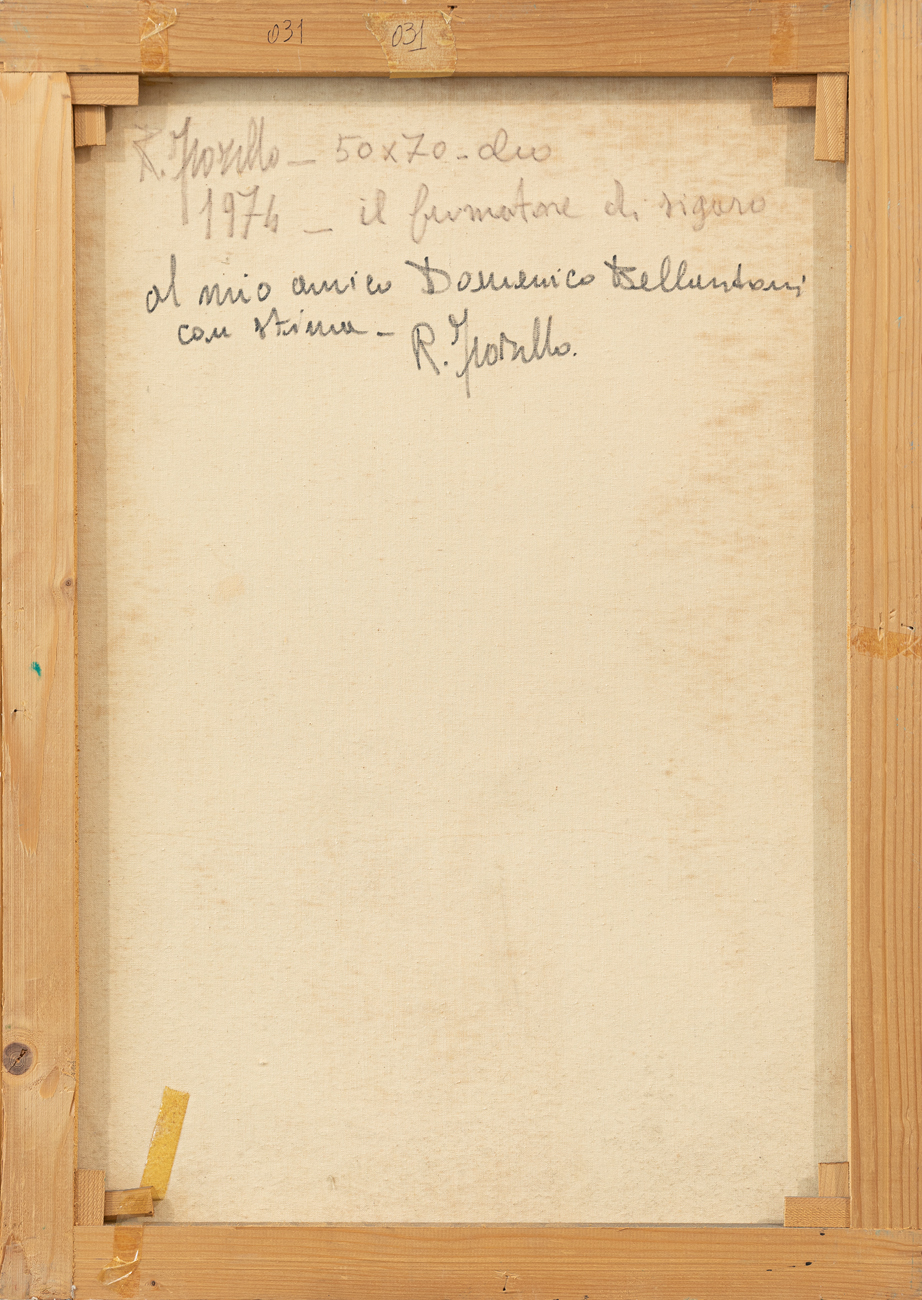 031 031
R. Morello - 50x70 - olio
1974 - il fumatore di sigaro
al mio amico Domenico Bellantoni
con stima - R. Morello.